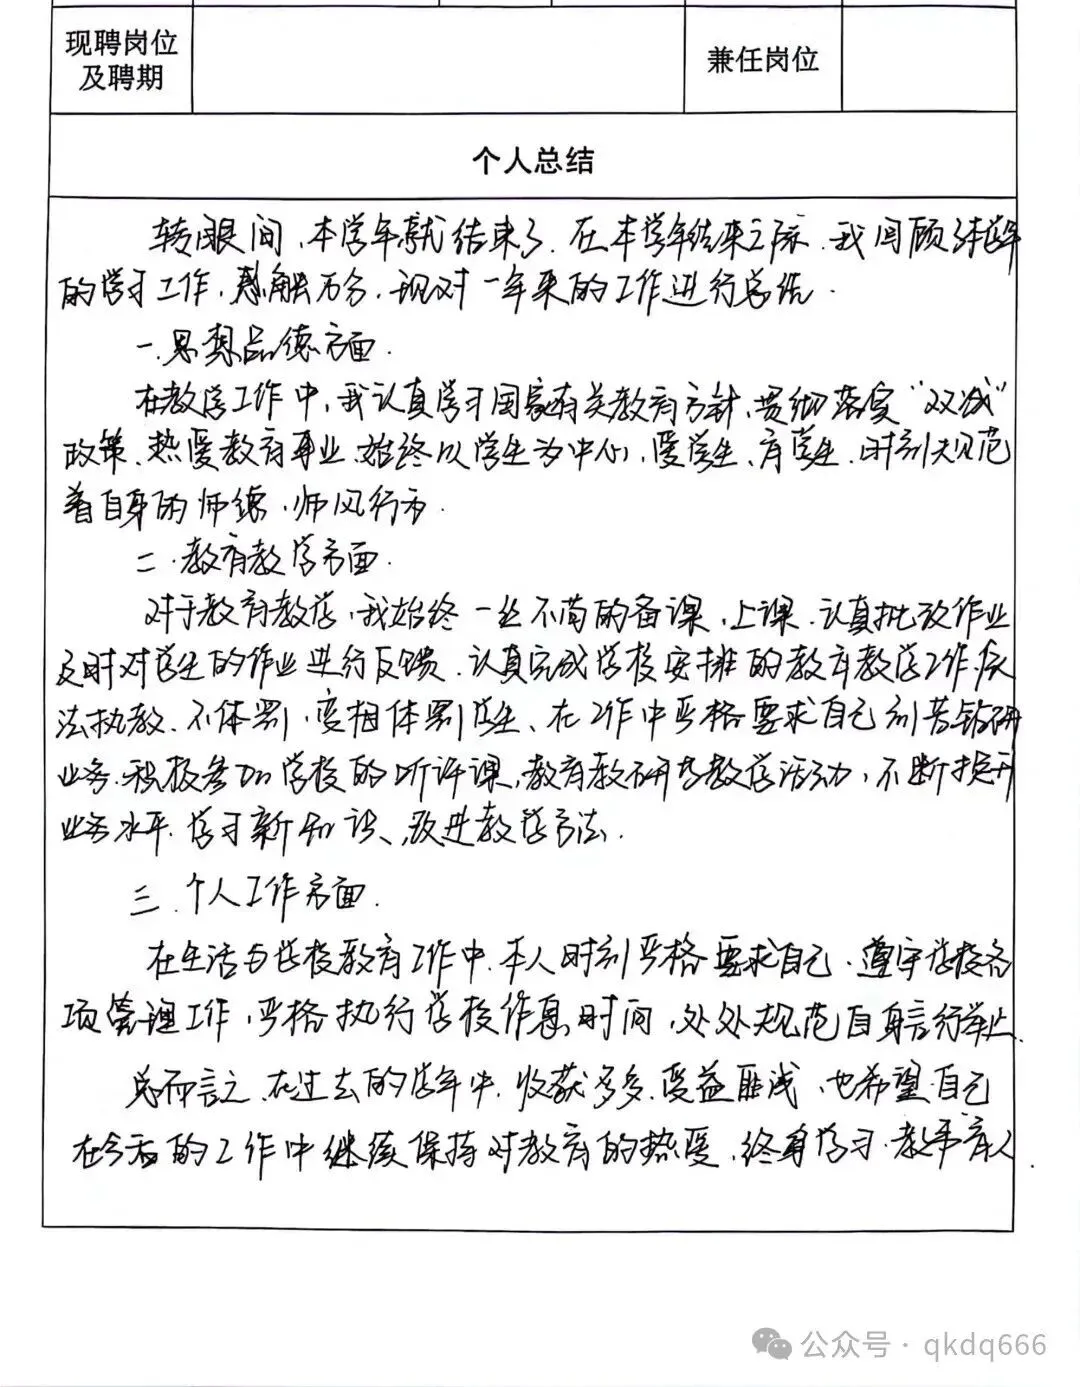 现聘岗位
及聘期
兼任岗位
个人总结
转眼间，本学年就结束了．在本学年结束之际．我回顾了本学年
的学习工作，感触万分．现对一年来的工作进行总结．
一．思想品德方面．
在教学工作中，我认真学习国家有关教育方针、贯彻落实“双减”
政策、热爱教育事业、始终以学生为中心，爱学生、育学生．时刻规范
着自身的师德、师风行为．
二．教育教学方面．
对于教育教学，我始终一丝不苟的备课、上课．认真批改作业
及时对学生的作业进行反馈．认真完成学校安排的教育教学工作．依
法执教．不体罚，变相体罚学生、在工作中严格要求自己刻苦钻研
业务．积极参加学校的听评课，教育教研专教学活动，不断提升
业务水平．学习新知识、改进教学方法．
三．个人工作方面．
在生活与学校教育工作中．本人时刻严格要求自己．遵守学校各
项管理工作，严格执行学校作息时间，处处规范自身言行举止．
总而言之．在过去的学年中．收获多多．受益匪浅，也希望自己
在今后的工作中继续保持对教育的热爱．终身学习．教书育人．
公众号 · qkdq666